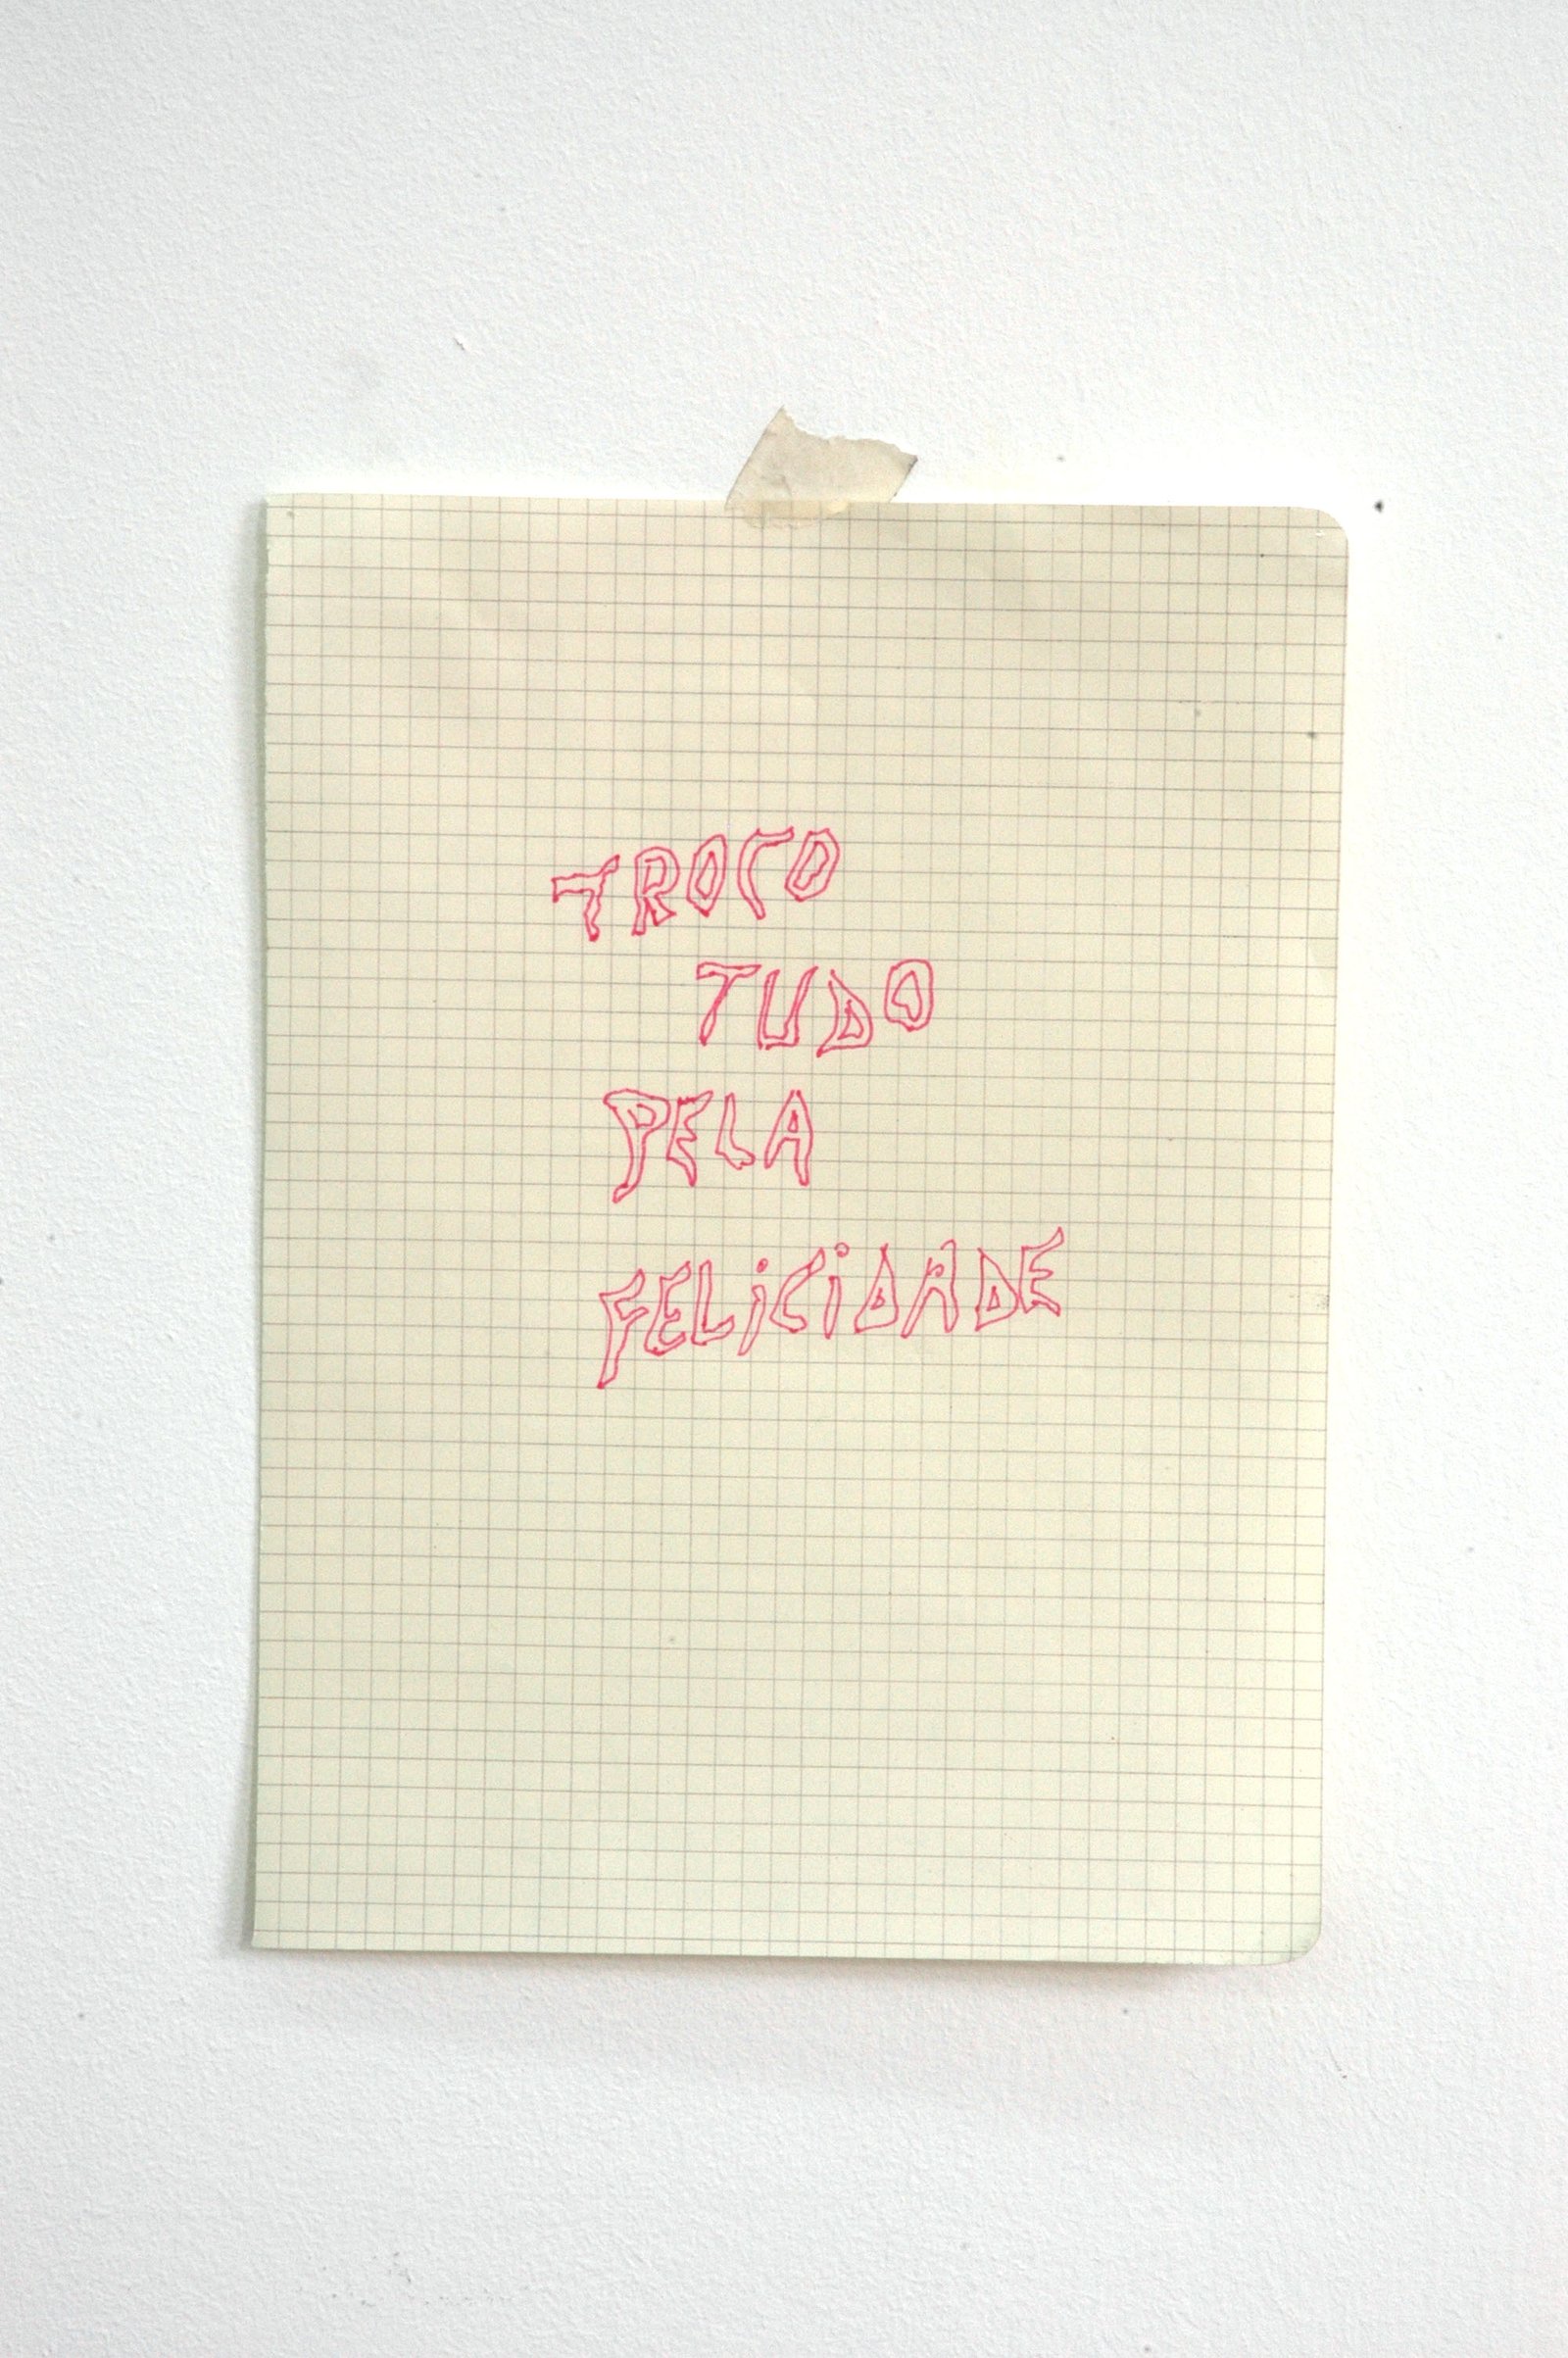 TROCO
TUDO
PELA
FELiCiDADE